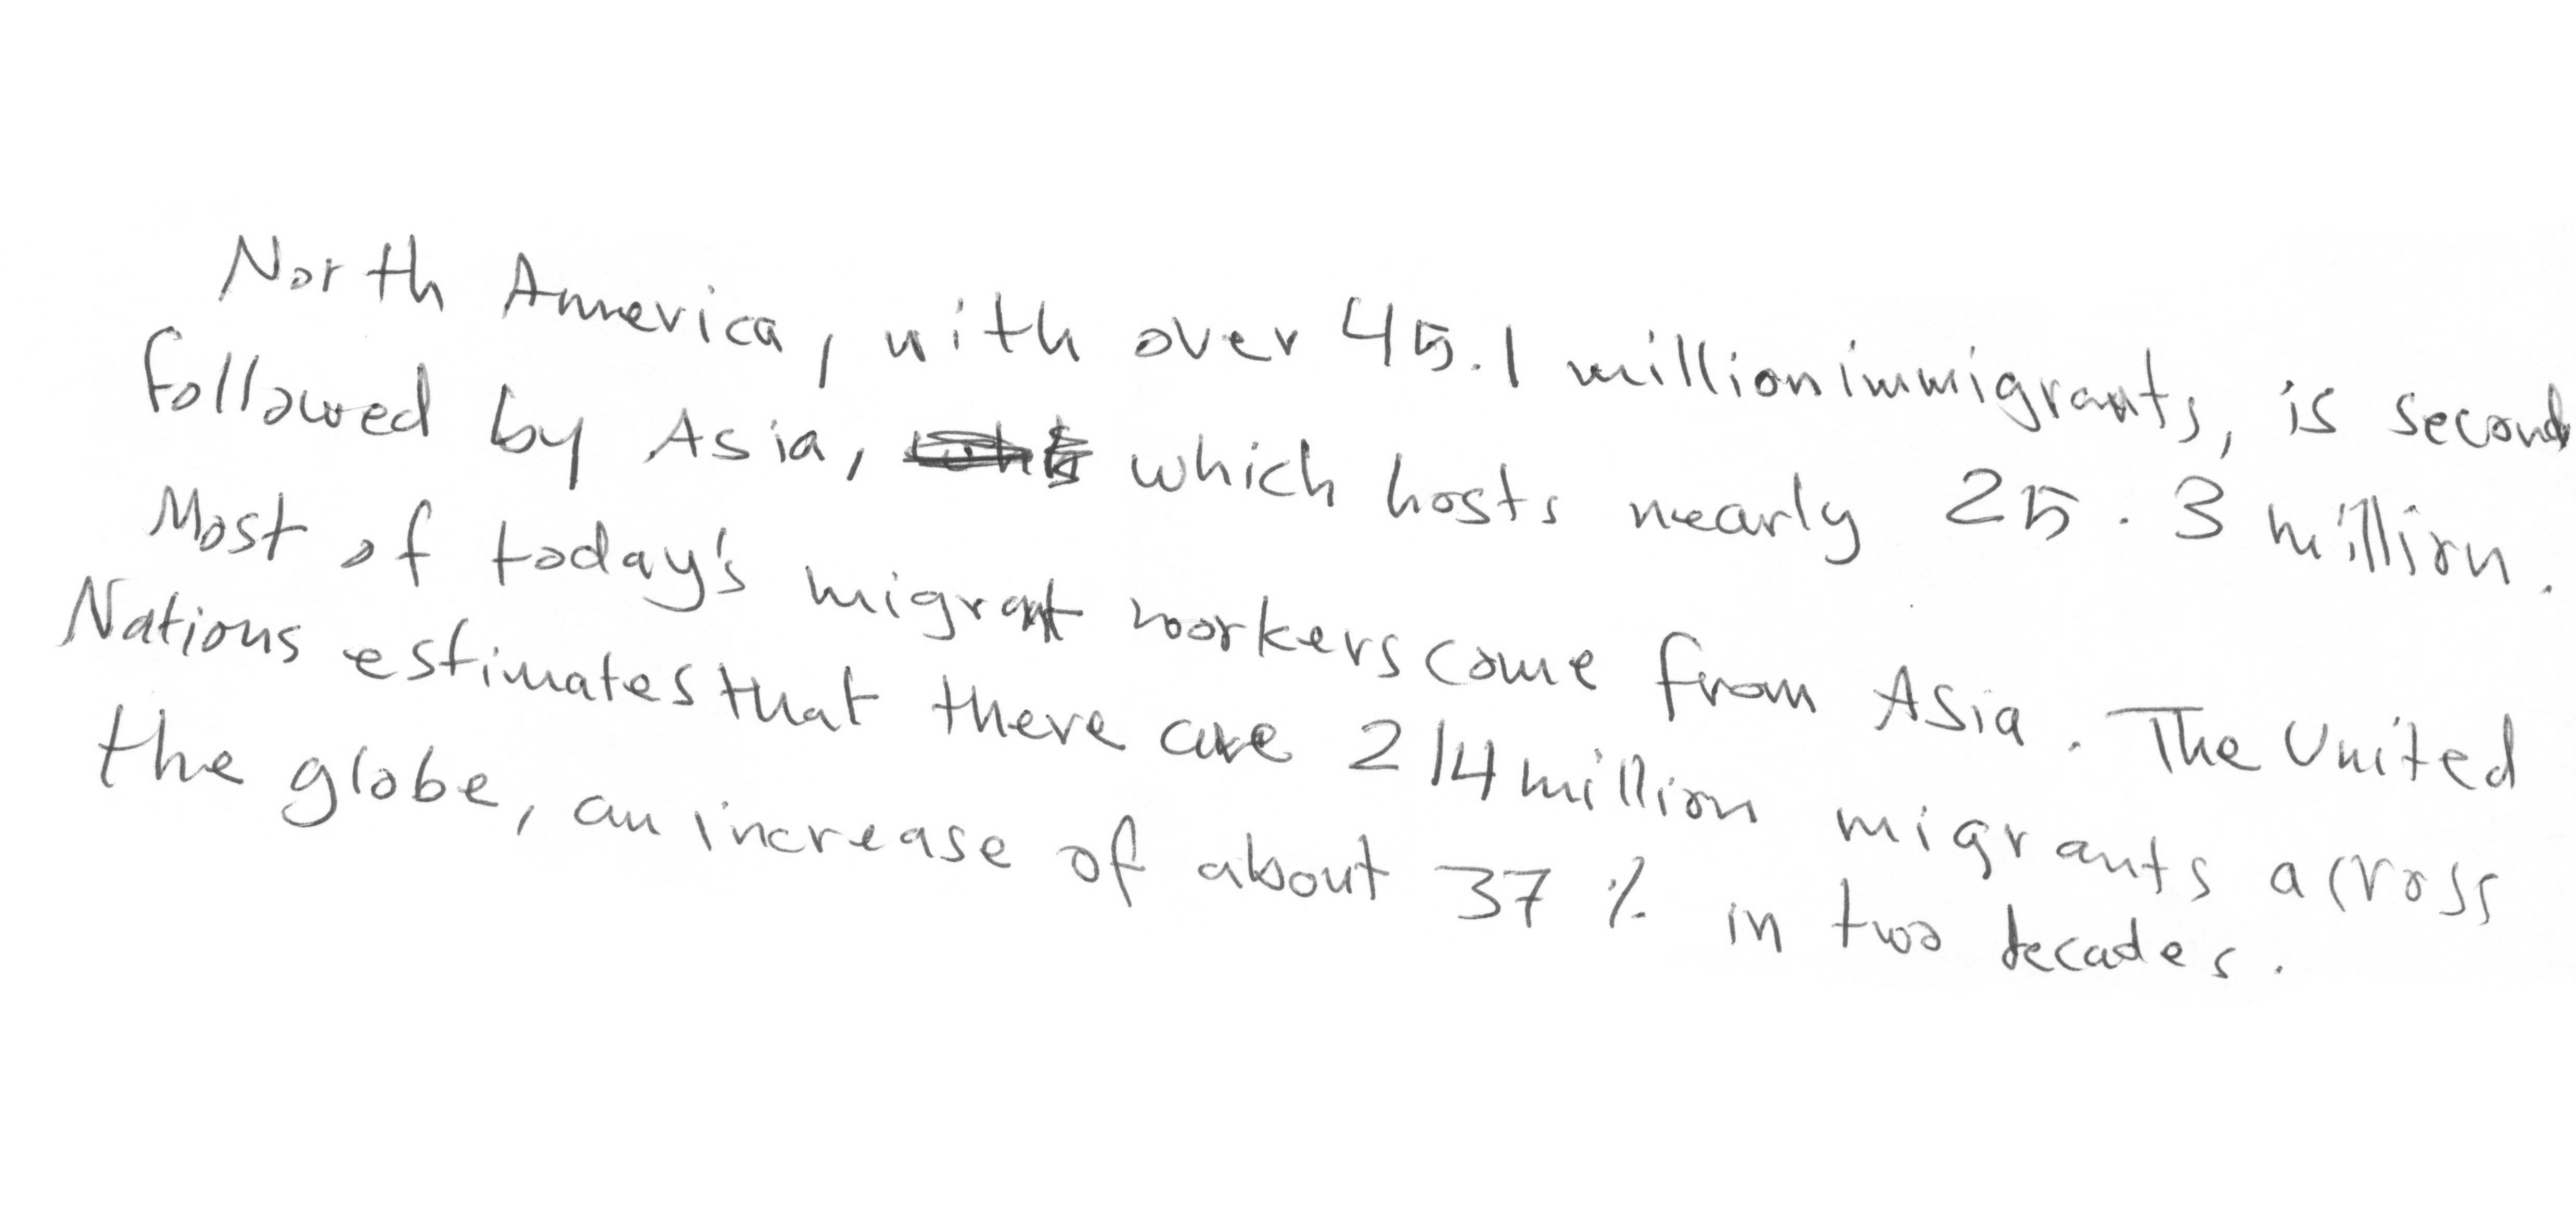 North America, with over 45.1 million immigrants, is second
followed by Asia, which hosts nearly 25.3 million.
Most of today's migrant workers come from Asia. The United
Nations estimates that there are 214 million migrants across
the globe, an increase of about 37% in two decades.